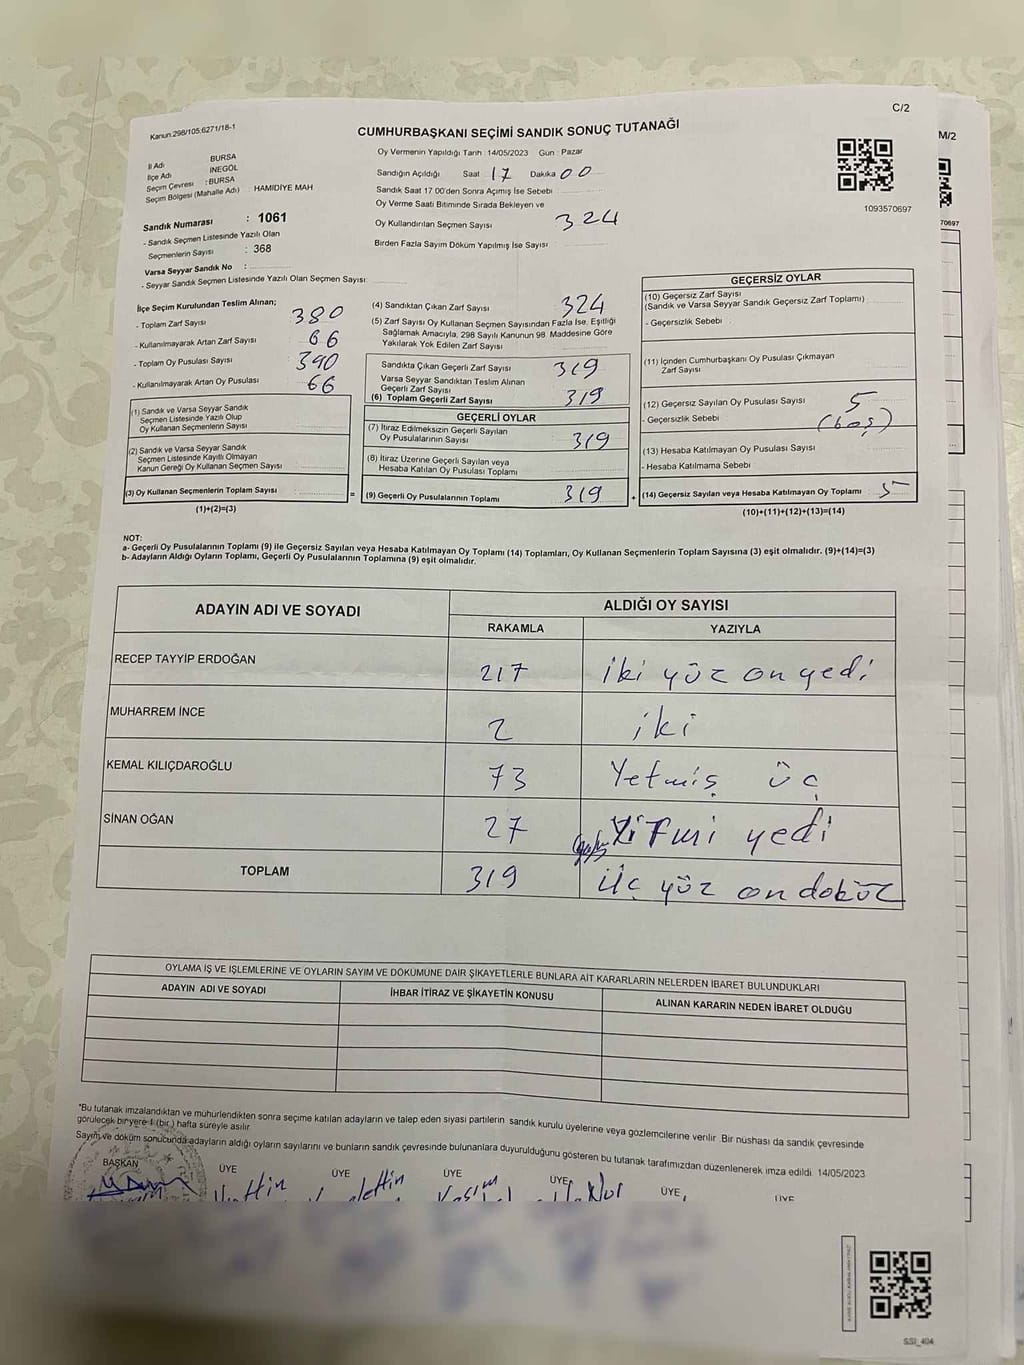 C/2
Kanun.298/105.6271/18-1
CUMHURBAŞKANI SEÇİMİ SANDIK SONUÇ TUTANAĞI
M/2
İl Adı BURSA
İlçe Adı INEGÖL
Seçim Çevresi : BURSA
Seçim Bölgesi (Mahalle Adı) : HAMIDIYE MAH
Sandık Numarası : 1061
- Sandık Seçmen Listesinde Yazılı Olan
Seçmenlerin Sayısı : 368
Varsa Seyyar Sandık No :
- Seyyar Sandık Seçmen Listesinde Yazılı Olan Seçmen Sayısı:
Oy Vermenin Yapıldığı Tarih : 14/05/2023 Gün : Pazar
Sandığın Açıldığı Saat 17 Dakika 00
Sandık Saat 17.00'den Sonra Açımış İse Sebebi
Oy Verme Saati Bitiminde Sırada Bekleyen ve
Oy Kullandırılan Seçmen Sayısı 324
Birden Fazla Sayım Döküm Yapılmış İse Sayısı
1093570697
70697
İlçe Seçim Kurulundan Teslim Alınan;
- Toplam Zarf Sayısı 380
- Kullanılmayarak Artan Zarf Sayısı 66
- Toplam Oy Pusulası Sayısı 390
- Kullanılmayarak Artan Oy Pusulası 66
(1) Sandık ve Varsa Seyyar Sandık
Seçmen Listesinde Yazılı Olup
Oy Kullanan Seçmenlerin Sayısı
(2) Sandık ve Varsa Seyyar Sandık
Seçmen Listesinde Kayıtlı Olmayan
Kanun Gereği Oy Kullanan Seçmen Sayısı
(3) Oy Kullanan Seçmenlerin Toplam Sayısı
(1)+(2)=(3)
(4) Sandıktan Çıkan Zarf Sayısı 324
(5) Zarf Sayısı Oy Kullanan Seçmen Sayısından Fazla İse, Eşitliği
Sağlamak Amacıyla, 298 Sayılı Kanunun 98. Maddesine Göre
Yakılarak Yok Edilen Zarf Sayısı
Sandıkta Çıkan Geçerli Zarf Sayısı 319
Varsa Seyyar Sandıktan Teslim Alınan
Geçerli Zarf Sayısı
(6) Toplam Geçerli Zarf Sayısı 319
GEÇERLİ OYLAR
(7) İtiraz Edilmeksizin Geçerli Sayılan
Oy Pusulalarının Sayısı 319
(8) İtiraz Üzerine Geçerli Sayılan veya
Hesaba Katılan Oy Pusulası Toplamı
= (9) Geçerli Oy Pusulalarının Toplamı 319 +
GEÇERSİZ OYLAR
(10) Geçersiz Zarf Sayısı
(Sandık ve Varsa Seyyar Sandık Geçersiz Zarf Toplamı)
- Geçersizlik Sebebi
(11) İçinden Cumhurbaşkanı Oy Pusulası Çıkmayan
Zarf Sayısı
(12) Geçersiz Sayılan Oy Pusulası Sayısı 5
- Geçersizlik Sebebi (boş)
(13) Hesaba Katılmayan Oy Pusulası Sayısı
- Hesaba Katılmama Sebebi
(14) Geçersiz Sayılan veya Hesaba Katılmayan Oy Toplamı 5
(10)+(11)+(12)+(13)=(14)
NOT:
a- Geçerli Oy Pusulalarının Toplamı (9) ile Geçersiz Sayılan veya Hesaba Katılmayan Oy Toplamı (14) Toplamları, Oy Kullanan Seçmenlerin Toplam Sayısına (3) eşit olmalıdır. (9)+(14)=(3)
b- Adayların Aldığı Oyların Toplamı, Geçerli Oy Pusulalarının Toplamına (9) eşit olmalıdır.
ADAYIN ADI VE SOYADI ALDIĞI OY SAYISI
RAKAMLA YAZIYLA
RECEP TAYYIP ERDOĞAN 217 iki yüz on yedi
MUHARREM İNCE 2 iki
KEMAL KILIÇDAROĞLU 73 Yetmiş üç
SİNAN OĞAN 27 Yirmi yedi
TOPLAM 319 üç yüz on dokuz
OYLAMA İŞ VE IŞLEMLERINE VE OYLARIN SAYIM VE DÖKÜMÜNE DAİR ŞIKAYETLERLE BUNLARA AİT KARARLARIN NELERDEN İBARET BULUNDUKLARI
ADAYIN ADI VE SOYADI İHBAR İTİRAZ VE ŞİKAYETİN KONUSU ALINAN KARARIN NEDEN İBARET OLDUĞU
*Bu tutanak imzalandıktan ve mühürlendikten sonra seçime katılan adayların ve talep eden siyasi partilerin sandık kurulu üyelerine veya gözlemcilerine verilir. Bir nüshası da sandık çevresinde
görülecek bir yere 1 (bir) hafta süreyle asılır.
Sayım ve döküm sonucunda adayların aldığı oyların sayılarını ve bunların sandık çevresinde bulunanlara duyurulduğunu gösteren bu tutanak tarafımızdan düzenlenerek imza edildi. 14/05/2023
BAŞKAN ÜYE ÜYE ÜYE ÜYE ÜYE ÜYE
SSI_404